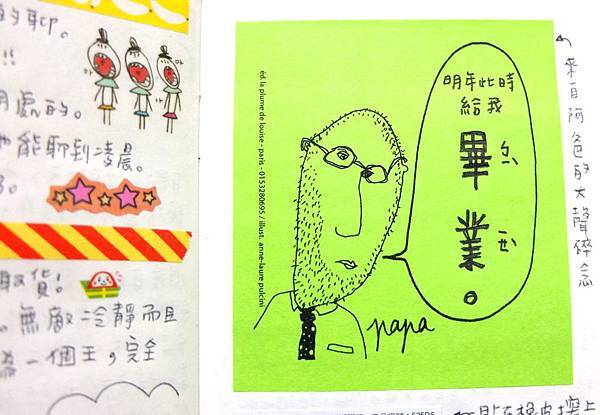 的聊。
!!
處的。
能聊到凌晨。
取貨!
。無敵冷靜而且
一個王,完全
éd. la plume de louise - paris - 0153280695 / illust. anne-laure pulcini
明年此時
給我
畢
業。
papa
來自阿爸的大聲碎念